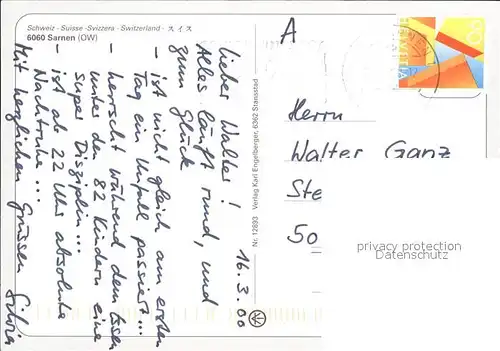 Schweiz - Suisse - Svizzera - Switzerland - スイス
6060 Sarnen (OW)
16.3.00
Lieber Walter!
Alles läuft rund, und
zum Glück
- ist nicht gleich am ersten
Tag ein Unfall passiert...
- herrscht während dem Essen
unter den 82 Kindern eine
super Disziplin...
- ist ab 22 Uhr absolute
Nachtruhe...
Mit herzlichen Grüssen Silvia
Nr. 12893 Verlag Karl Engelberger, 6362 Stansstad
A
HELVETIA
90
Herrn
Walter Ganz
Ste
50
privacy protection
Datenschutz